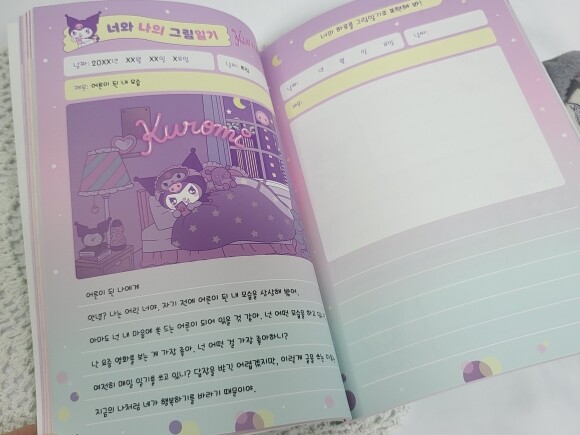 너와 나의 그림일기
날짜: 20XX년 XX월 XX일 X요일
날씨:
제목: 어른이 된 내 모습
Kuromi
어른이 된 나에게
안녕? 나는 어린 너야. 자기 전에 어른이 된 내 모습을 상상해 봤어.
아마도 넌 내 마음에 쏙 드는 어른이 되어 있을 것 같아. 넌 어떤 모습을 하고 있
난 요즘 영화를 보는 게 가장 좋아. 넌 어떤 걸 가장 좋아하니?
여전히 매일 일기를 쓰고 있니? 답장을 받긴 어렵겠지만, 이렇게 글을 쓰는 이유는
지금의 나처럼 네가 행복하기를 바라기 때문이야.
너의 하루를 그림일기로 표현해 봐!
날짜: 년 월 일 요일
날씨:
제목: